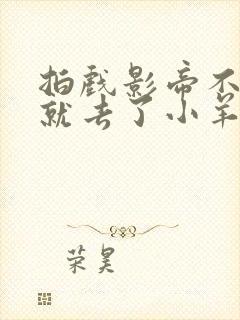 拍戏影帝不
就去了小羊
荣昊